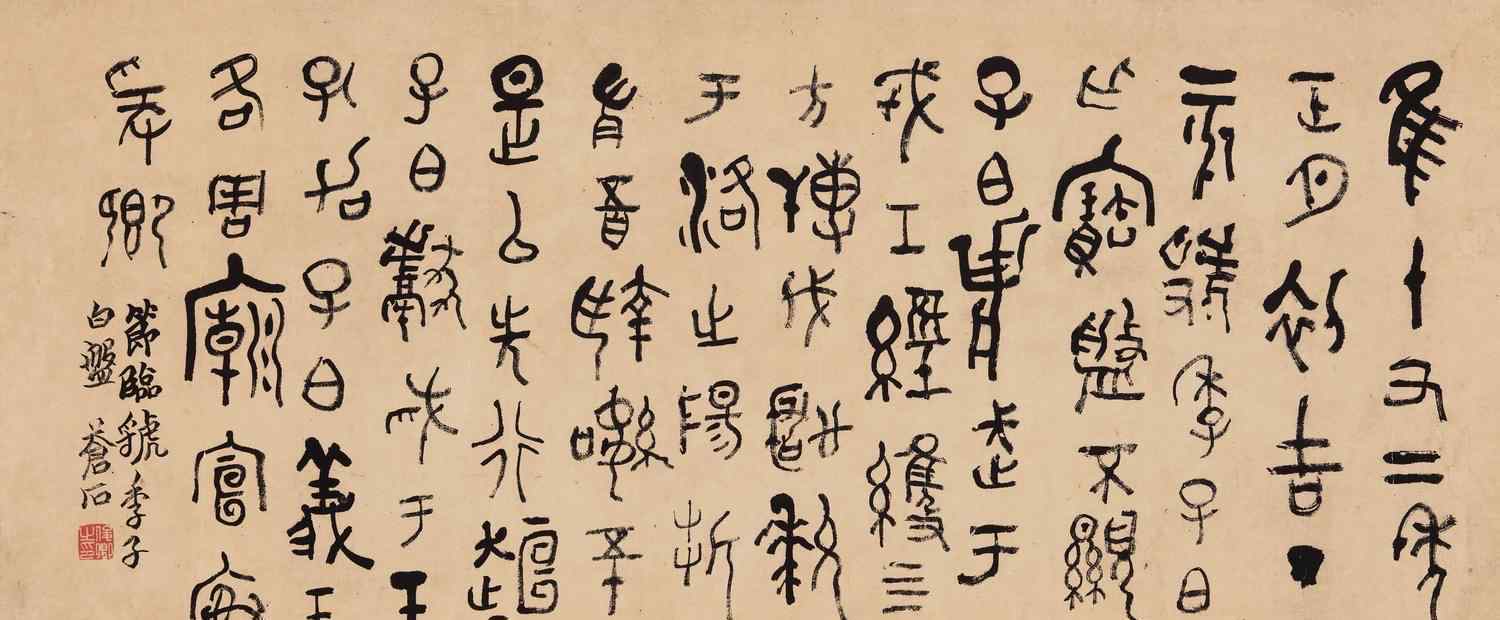 隹十又二年
正月初吉丁
亥虢季子白
乍寶盤不顯
子白壯武于
戎工經維四
方搏伐玁狁
于洛之陽折
首五百執訊五十
是以先行桓
子白獻馘于王
孔加子白義王
各周廟宣
爰卿
節臨虢季子
白盤 蒼石